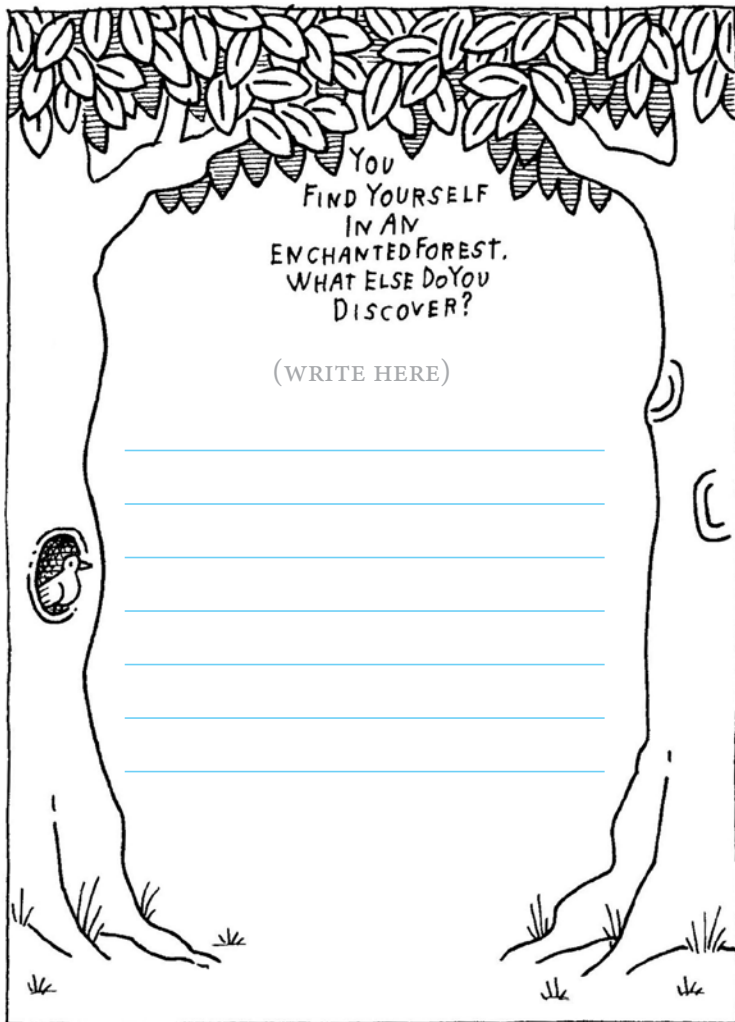 YOU
FIND YOURSELF
IN AN
ENCHANTED FOREST.
WHAT ELSE DO YOU
DISCOVER?
(WRITE HERE)